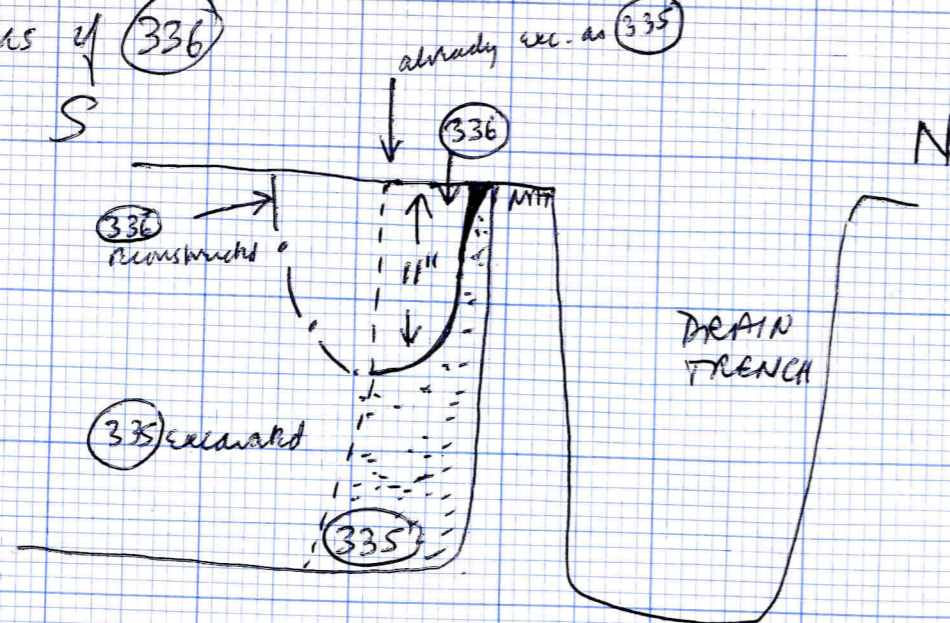 336
already exc. as 335
S
336
N
NAT
336
reconstructed
11"
DRAIN
TRENCH
335 excavated
335